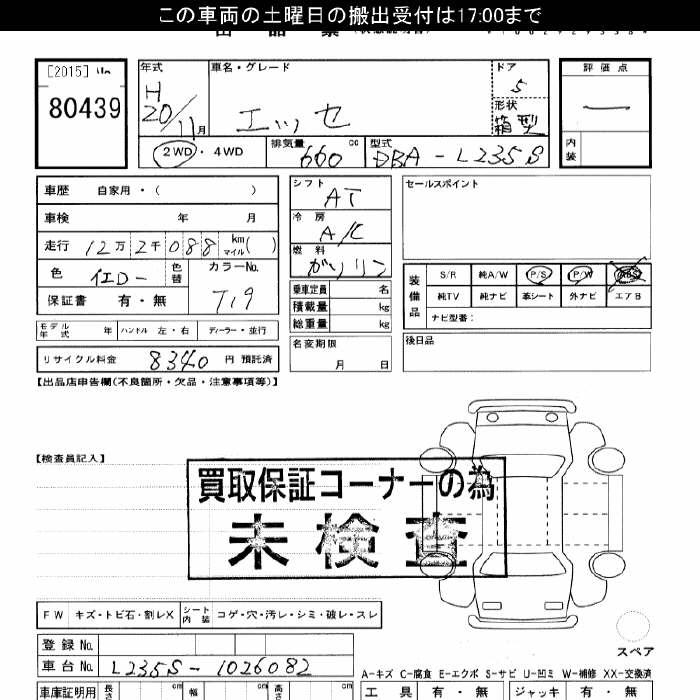 この車両の土曜日の搬出受付は17:00まで
[2015]
80439
年式
H 20/11月
車名・グレード
エッセ
ドア
5
形状
箱型
評価点
内装
2WD・4WD
排気量 660 cc
型式 DBA-L235S
車歴 自家用・( )
車検 年 月
走行 12万2千088 km マイル( )
色 イエロー 色替 カラーNo. T19
保証書 有・無
モデル年式 年 ハンドル 左・右 ディーラー・並行
リサイクル料金 8340 円 預託済
シフト AT
冷房 A/C
燃料 ガソリン
乗車定員 名
積載量 kg
総重量 kg
名変期限 月 日
セールスポイント
装備品
S/R 純A/W P/S P/W ABS
純TV 純ナビ 革シート 外ナビ エアB
ナビ型番:
後日品
【出品店申告欄(不良箇所・欠品・注意事項等)】
【検査員記入】
買取保証コーナーの為
未検査
FW キズ・トビ石・割レX シート内装 コゲ・穴・汚レ・シミ・破レ・スレ
スペア
登録No.
車台No. L235S-1026082
A-キズ C-腐食 E-エクボ S-サビ U-凹ミ W-補修 XX-交換済
車庫証明用 長さ cm 幅 cm 高さ cm
工具 有・無 ジャッキ 有・無